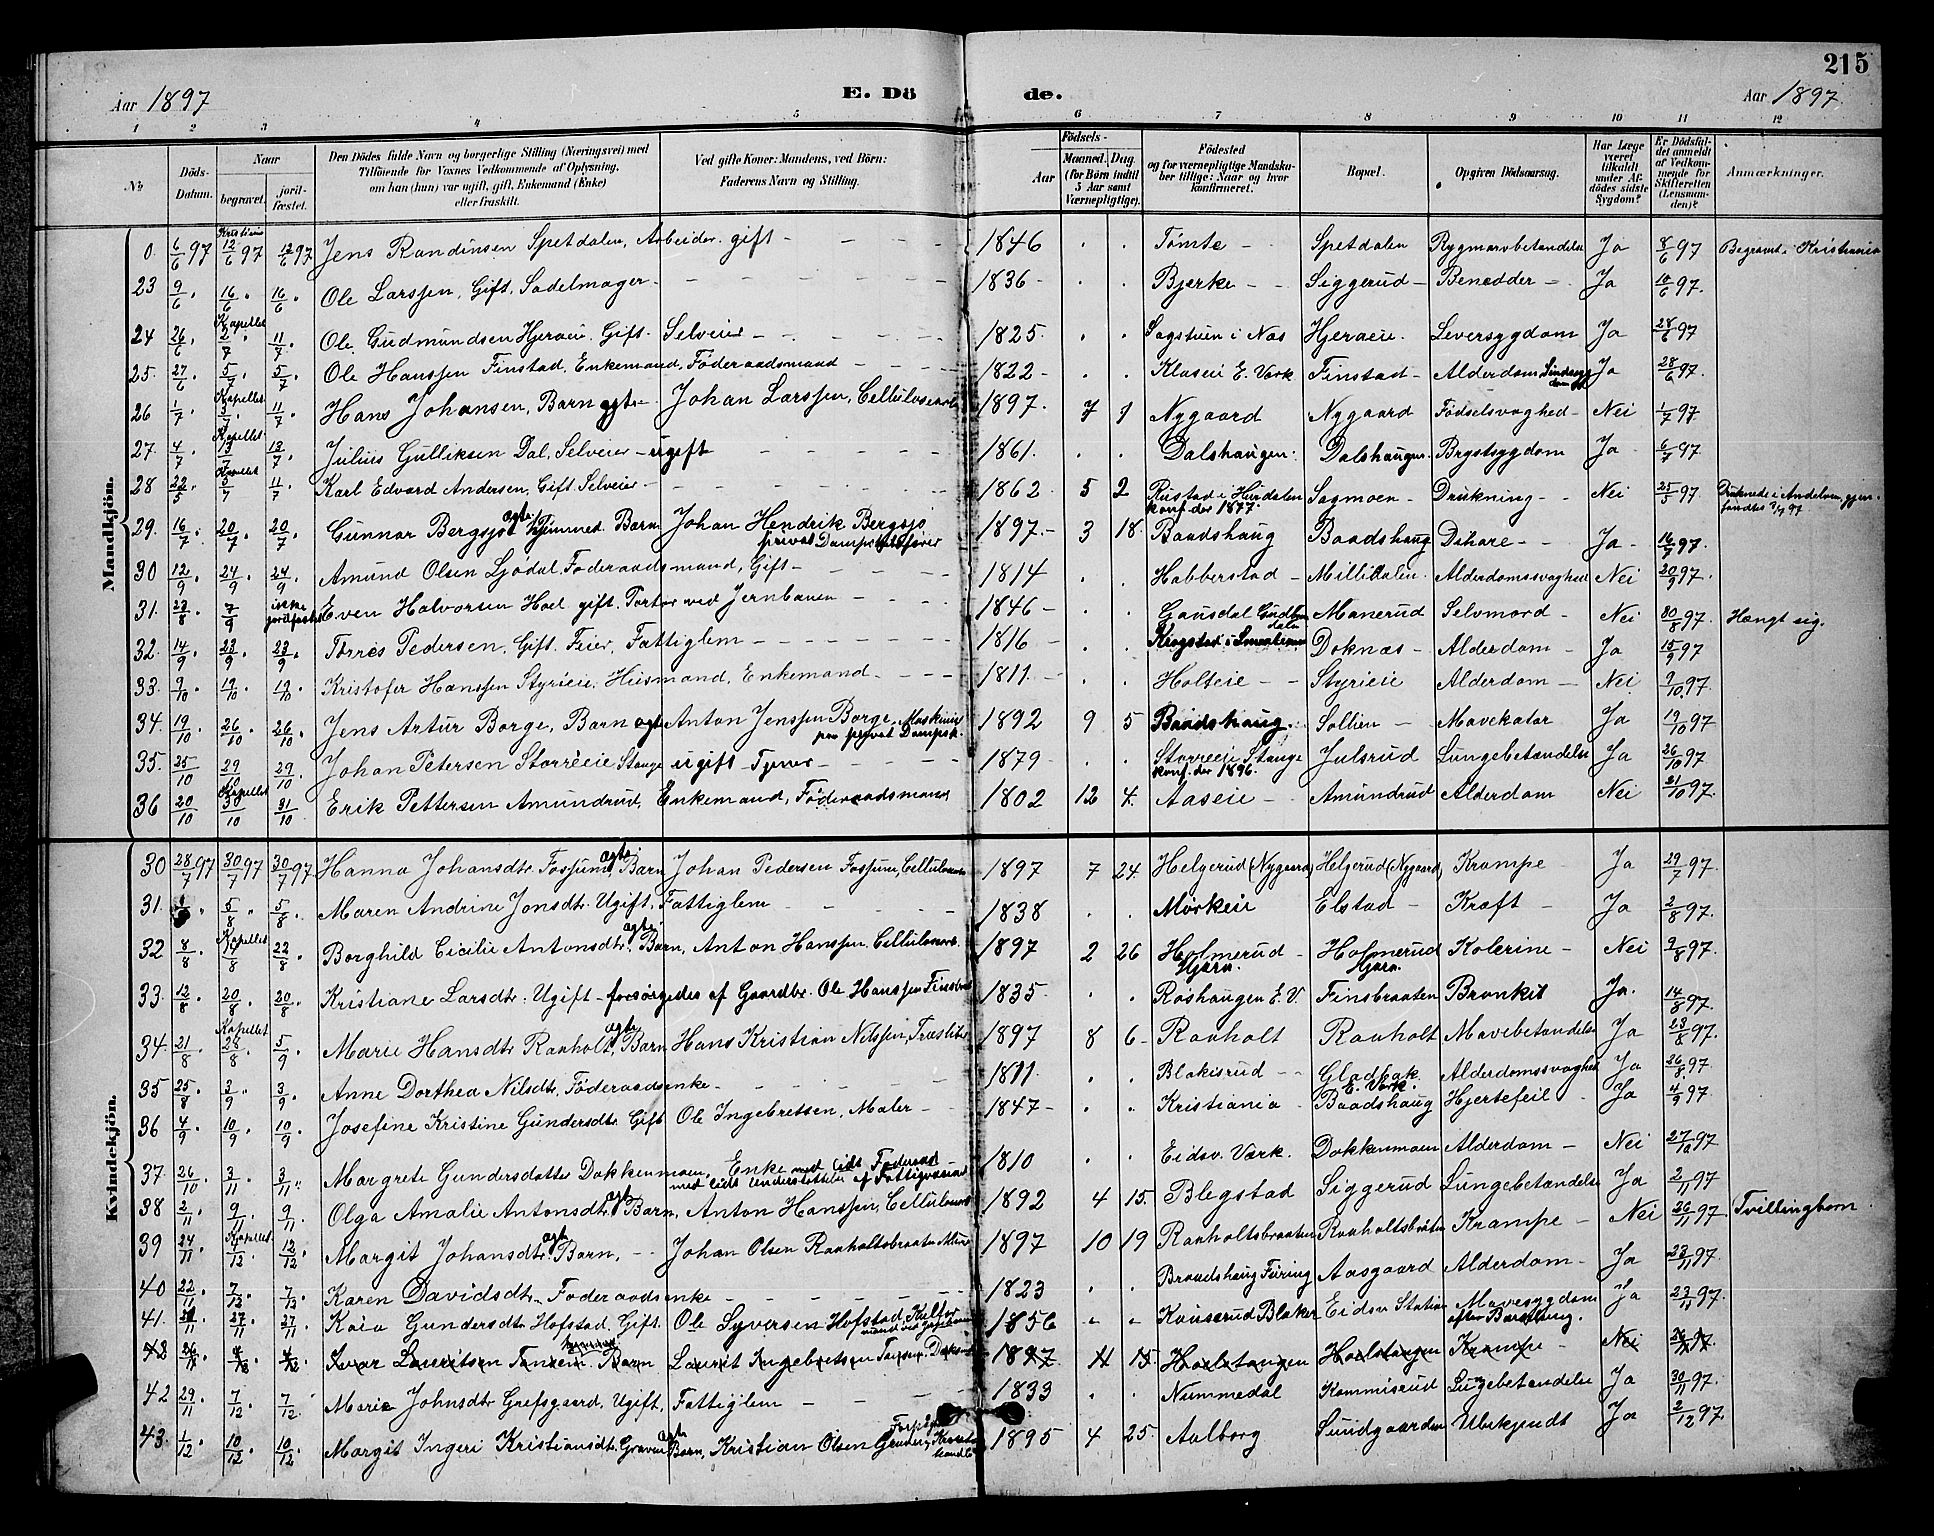 215
Aar 1897 E. Dö de. Aar 1897.
1 2 3 4 5 6 7 8 9 10 11 12
No. Döds-Datum. Naar begravet. jordfæstet. Den Dödes fulde Navn og borgerlige Stilling (Næringsvei) med Tilföiende for Voxnes Vedkommende af Oplysning, om han (hun) var ugift, gift, Enkemand (Enke) eller fraskilt. Ved gifte Koner: Mandens, ved Börn: Faderens Navn og Stilling. Födsels- Aar Maaned. Dag. (for Börn indtil 5 Aar samt Værnepligtige). Födested og for værnepligtige Mandskaber tillige: Naar og hvor konfirmeret. Bopæl. Opgiven Dödsaarsag. Har Læge været tilkaldt under Afdödes sidste Sygdom? Er Dödsfaldet anmeldt af Vedkommende for Skifteretten (Lensmanden)? Anmærkninger.
Mandkjön.
0. 6/6 97 Kristiania 12/6 97 12/6 97 Jens Randinsen Spetdalen, Arbeider. gift - 1846 Tømte - Spetdalen Rygmarvbetændelse Ja 8/6 97 Begravet i Kristiania
23 9/6 16/6 16/6 Ole Larssen, Gift, Sadelmager - 1836 - Bjerke - Siggerud - Benødder - Ja 10/6 97.
24 26/6 Kapellet 2/7 11/7 Ole Gudmundsen Hjeraeie. Gift. Selveier - 1825. Sagstuen i Næs Hjeraeie. Leversygdom Ja 28/6 97
25. 27/6 5/7 5/7 Ole Hanssen Finstad, Enkemand, Föderaadsmand 1822 - Klaseie E. Værk Finstad - Alderdom Ja 28/6 97.
26 1/7 Kapellet 3/7 11/7 Hans Johansen, Barn ægte - Johan Larssen, Cellulosearb. 1897. 7 1 Nygaard Nygaard Födselsvaghed - Nei 1/7 97
27. 4/7 Kapellet 13/7 13/7 Julius Gulliksen Dal, Selveier - ugift 1861. Dalshaugen. Dalshaugen. Brystsygdom Ja - 6/7 97
28 22/5 Kapellet 5/7 11/7 Karl Edvard Andersen, Gift. Selveier - 1862. 5 2 Rustad i Hurdalen konf. der 1877. Sagmoen - Drukning - Nei 25/5 97. Druknede i Andelven, gjenfandtes 97
29. 16/7 20/7 20/7 Gunnar Bergsjø ægte hjemmed. Barn Johan Hendrik Bergsjø privat 1897. - 3 18. Baadshaug Baadshaug Diharé - Ja - 16/7 97.
30 12/9 24/9 24/9 Amund Olsen Ljødal, Föderaadsmand, Gift - 1814 Habberstad - Millidalen. Alderdomssvaghed Nei 20/9 97.
31. 23/8 7/9 ikke jordfæstet Even Halvorsen Hoel gift. Portør ved Jernbanen - 1846 - Gausdal Gudbrandsdalen Manerud Selvmord - Nei 30/8 97. Hængt sig.
32. 14/9 23/9 23/9 Torris Pedersen, Gift. Feier, Fattiglem - 1816 - Kragstad i Smaalenene Doknæs - Alderdom - Ja 15/9 97
33. 9/10 19/10 19/10 Kristofer Hanssen Styrieie, Husmand, Enkemand - 1811. Holteie - Styrieie Alderdom - Nei 9/10 97.
34. 19/10 26/10 26/10 Jens Artur Borge, Barn ægte Anton Jenssen Borge, Maskinist paa privat Dampsk. 1892 9 5 Baadshaug. Sollien - Mavekatar Ja 19/10 97
35. 25/10 29/10 29/10 Johan Petersen Storreeie Stange ugift - Tjener - 1879 Storreeie Stange konf. der 1896. Julsrud Lungebetændelse Ja 26/10 97.
36 20/10 Kapellet 30/10 31/10 Erik Pettersen Amundrud, Enkemand, Föderaadsmand 1802 12 4. Aaseie - Amundrud Alderdom Nei 21/10 97.
Kvindekjön.
30 28/7 97 30/7 97 30/7 97 Hanna Johansdtr. Fossum ægte Barn Johan Pedersen Fossum, Cellulosearb 1897 7 24 Helgerud (Nygaard) Helgerud (Nygaard) Krampe - Ja 29/7 97.
31. 5/8 5/8 Maren Andrine Jonsdtr. Ugift. Fattiglem 1838 Mørkeie Elstad - Kræft - Ja 2/8 97.
32 8/8 Kapellet 22/8 Borghild Cicilie Antonsdtr ægte Barn, Anton Hanssen, Cellulosearb. 1897 2 26 Holmerud - Hjera. Holmerud Hjera. Kolerine - Nei 9/8 97.
33. 12/8 20/8 20/8 Kristiane Larsdtr. Ugift - forsørgedes af Gaardbr. Ole Hanssen Finsbraaten 1835. Røshaugen E. V. Finsbraaten Bronkit Ja. 14/8 97.
34. 21/8 Kapellet 28/8 5/9 Marie Hansdtr Raaholt, ægte Barn Hans Kristian Nilssen, Træsliber 1897 8 6 - Raaholt Raaholt Mavebetændelse Ja 23/8 97.
35 25/8 3/9 3/9 Anne Dorthea Nilsdtr, Föderaadsenke - 1811. Blakisrud - Gladbak E. Værk. Alderdomssvaghed Ja 26/8 97
36 4/9 10/9 10/9 Josefine Kristine Gundersdtr. Gift Ole Ingebretsen, Maler - 1847 - Kristiania Baadshaug Hjertefeil - Ja 4/9 97.
37. 26/10 3/11 3/11 Margrete Gundersdatter Dokkenmoen, Enke med lidt Föderaad med lidt Understöttelse af Fattigvæsenet 1810 Eidsv. Værk. Dokkenmoen Alderdom - Nei 27/10 97
38 2/11 9/11 9/11 Olga Amalie Antonsdtr. ægte Barn, Anton Hanssen, Cellulosearb 1892 4 15. Blegstad Siggerud Lungebetændelse Ja 2/11 97
39 24/11 Kapellet 7/12 12/12 Margit Johansdtr. ægte Barn, - Johan Olsen Raaholtsbraaten 1897 10 19 Raaholtsbraaten Raaholtsbraaten Krampe - Nei 26/11 97. Tvillingbarn
40 22/11 7/12 7/12 Karen Davidsdtr. Föderaadsenke - 1823 Braadshaug Füring Aasgaard Alderdom - Ja 23/11 97.
41. 27/11 27/11 Kaia Gundersdtr Hofstad, Gift. Ole Syversen Hofstad, 1856 Kauserud Blaker Eidsv Station Mavesygdom efter Barselseng. Ja 23/11 97.
42 26/11 Ivar Lauritsen Tansem. Barn Laurit Ingebretsen Tansem, 1897. 11 15. Hoelstangen Hoelstangen Krampe - Nei
42 29/11 7/12 7/12 Marie Johnsdtr Græfsgaard, Ugift, Fattiglem - 1833 Nummedal Kommisrud Lungebetændelse Ja 30/11 97.
43. 1/12 10/12 10/12 Margit Ingeri Kristiansdtr. ægte Barn, Kristian Olsen 1895 4 25. Aalborg Sundgaarden Ubekjendt Ja 2/12 97.